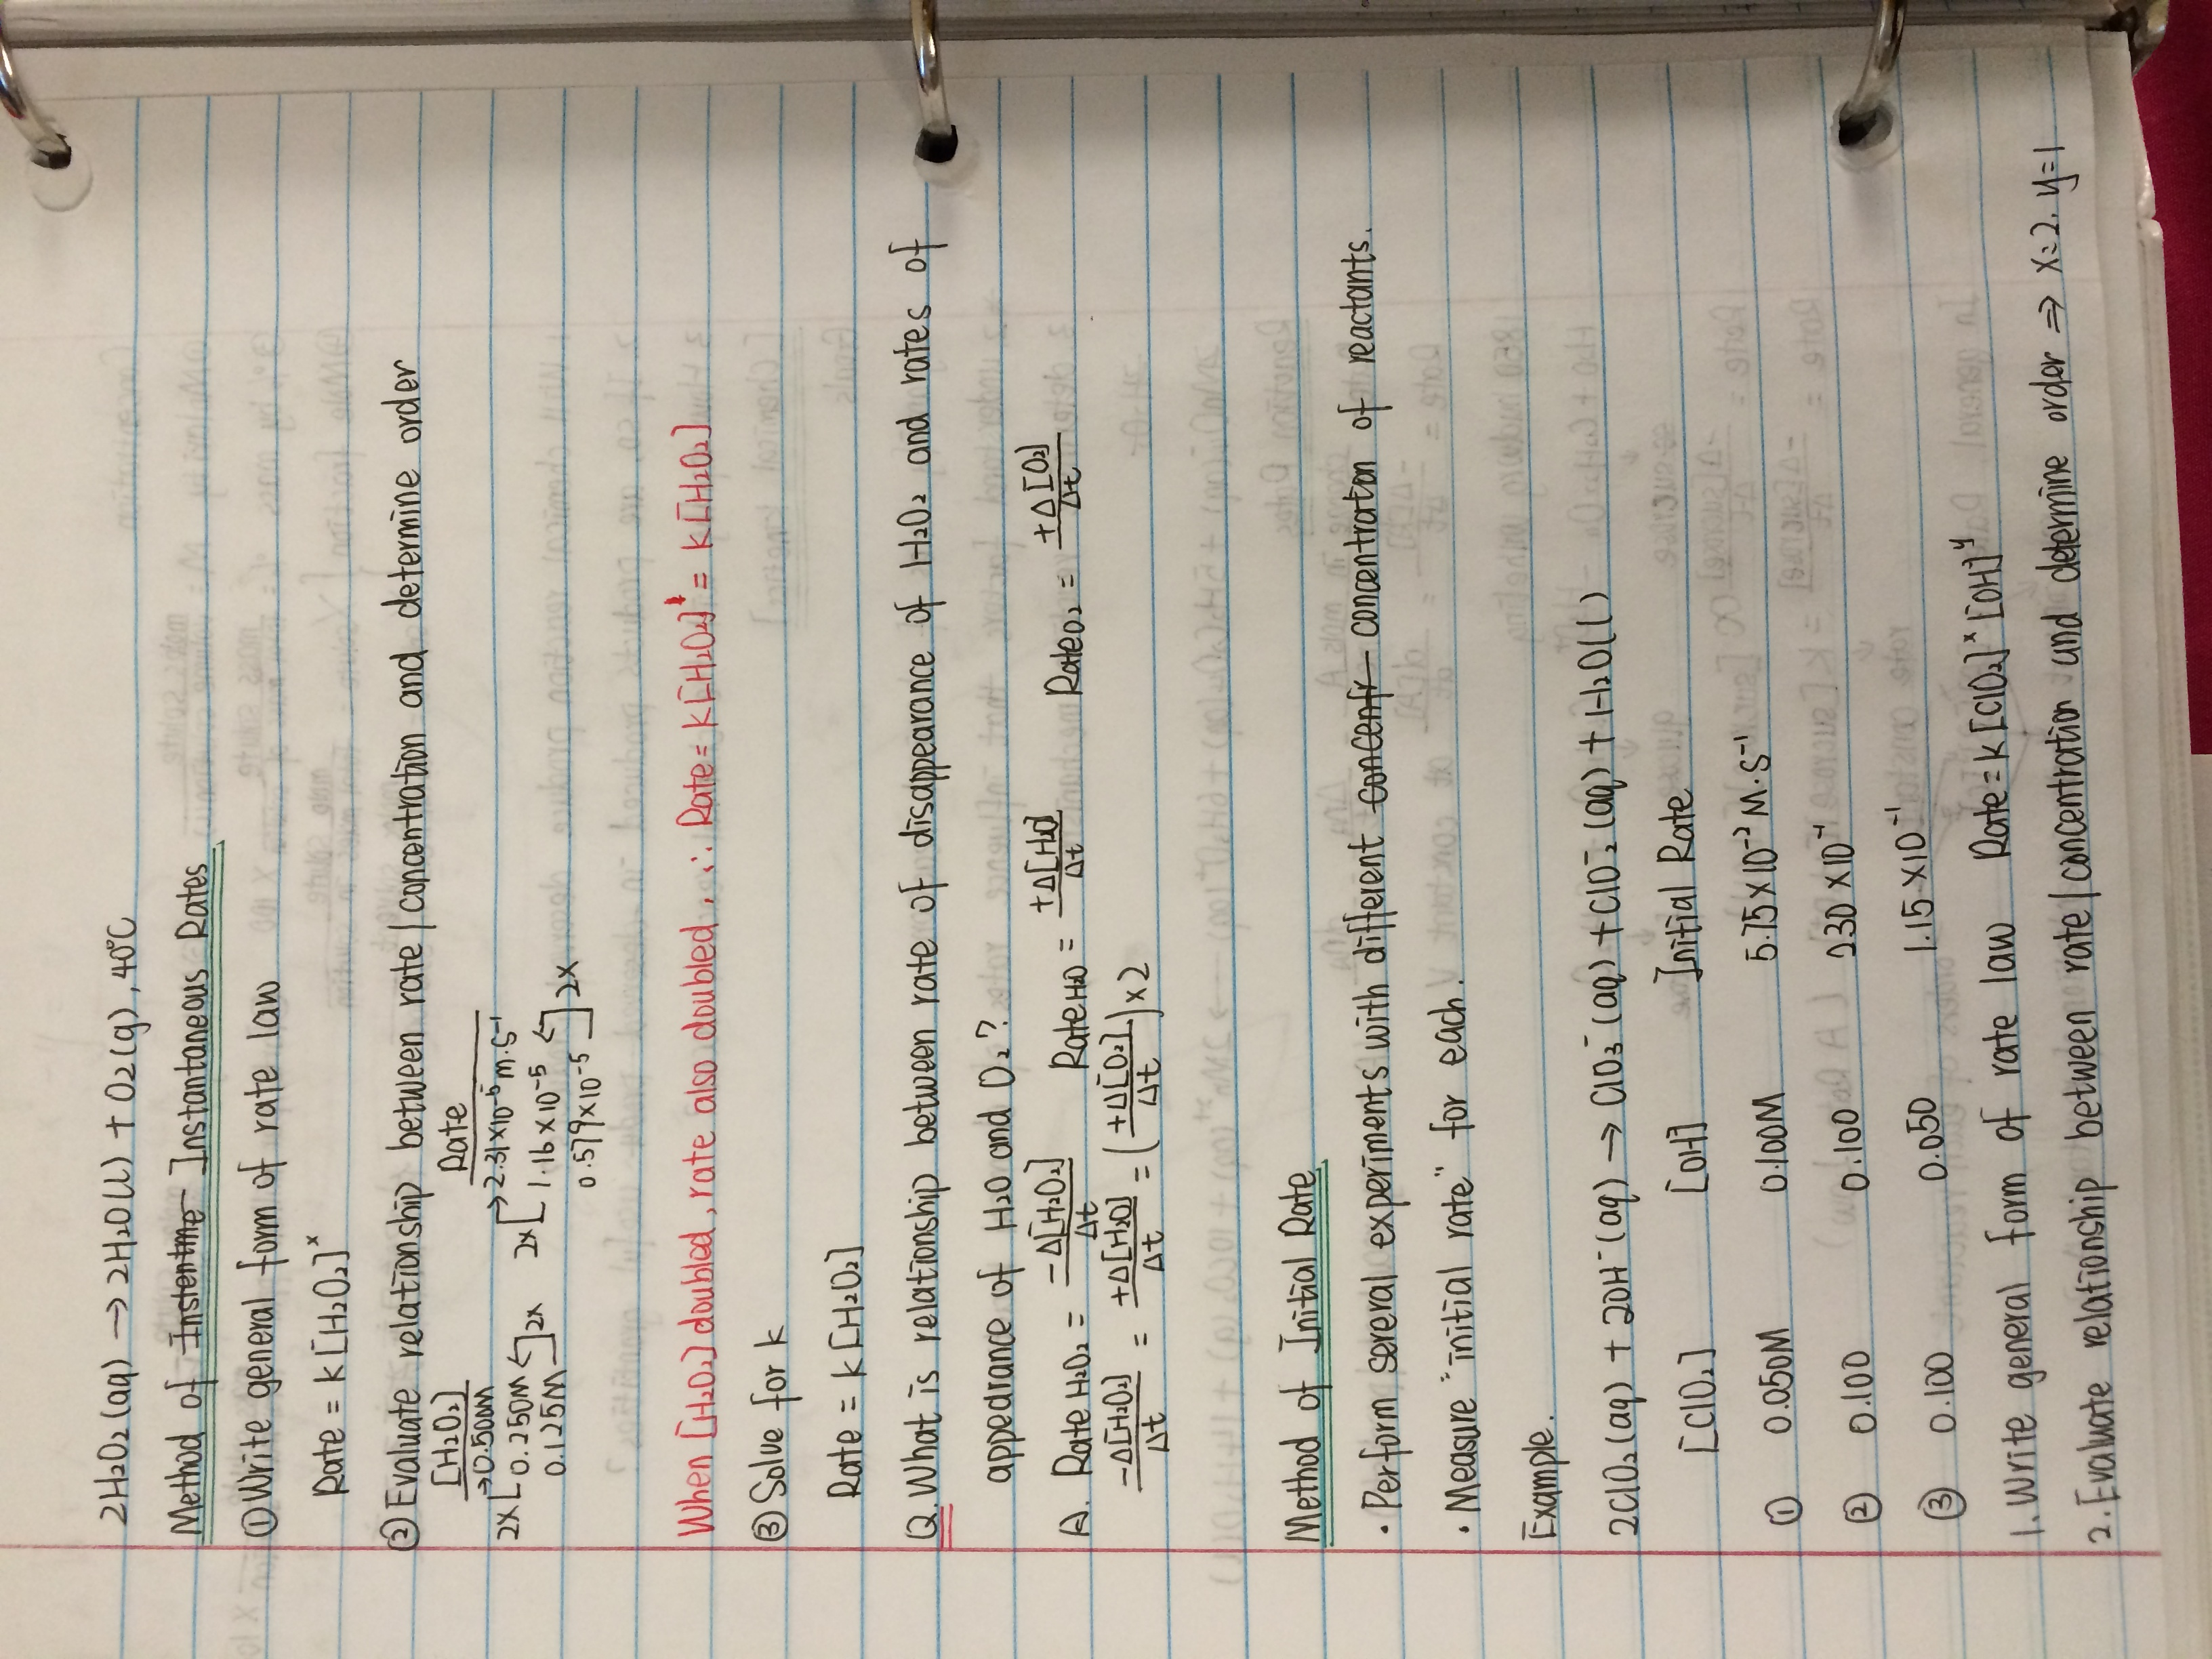 2H₂O₂(aq) → 2H₂O(l) + O₂(g), 40°C
Method of Instentme Instantaneous Rates
① Write general form of rate law
Rate = k[H₂O₂]ˣ
② Evaluate relationship between rate/concentration and determine order
[H₂O₂] Rate
→0.500M →2.31×10⁻⁵ M·s⁻¹
2x[ 0.250M ↰ 2x[ 1.16×10⁻⁵ ↰
0.125M ]2x 0.579×10⁻⁵ ]2x
When [H₂O₂] doubled, rate also doubled, ∴ Rate = k[H₂O₂]¹ = k[H₂O₂]
③ Solve for k
Rate = k[H₂O₂]
Q. What is relationship between rate of disappearance of H₂O₂ and rates of
appearance of H₂O and O₂?
A. Rate H₂O₂ = -Δ[H₂O₂]/Δt Rate H₂O = +Δ[H₂O]/Δt Rate O₂ = +Δ[O₂]/Δt
-Δ[H₂O₂]/Δt = +Δ[H₂O]/Δt = (+Δ[O₂]/Δt) × 2
Method of Initial Rate
• Perform several experiments with different concentr concentraton of reactants.
• Measure "initial rate" for each.
Example.
2ClO₂(aq) + 2OH⁻(aq) → ClO₃⁻(aq) + ClO₂⁻(aq) + H₂O(l)
[ClO₂] [OH] Initial Rate
① 0.050M 0.100M 5.75×10⁻² M·S⁻¹
② 0.100 0.100 2.30×10⁻¹
③ 0.100 0.050 1.15×10⁻¹
1. Write general form of rate law Rate = k[ClO₂]ˣ[OH]ʸ
2. Evaluate relationship between rate/concentration and determine order ⇒ x=2. y=1